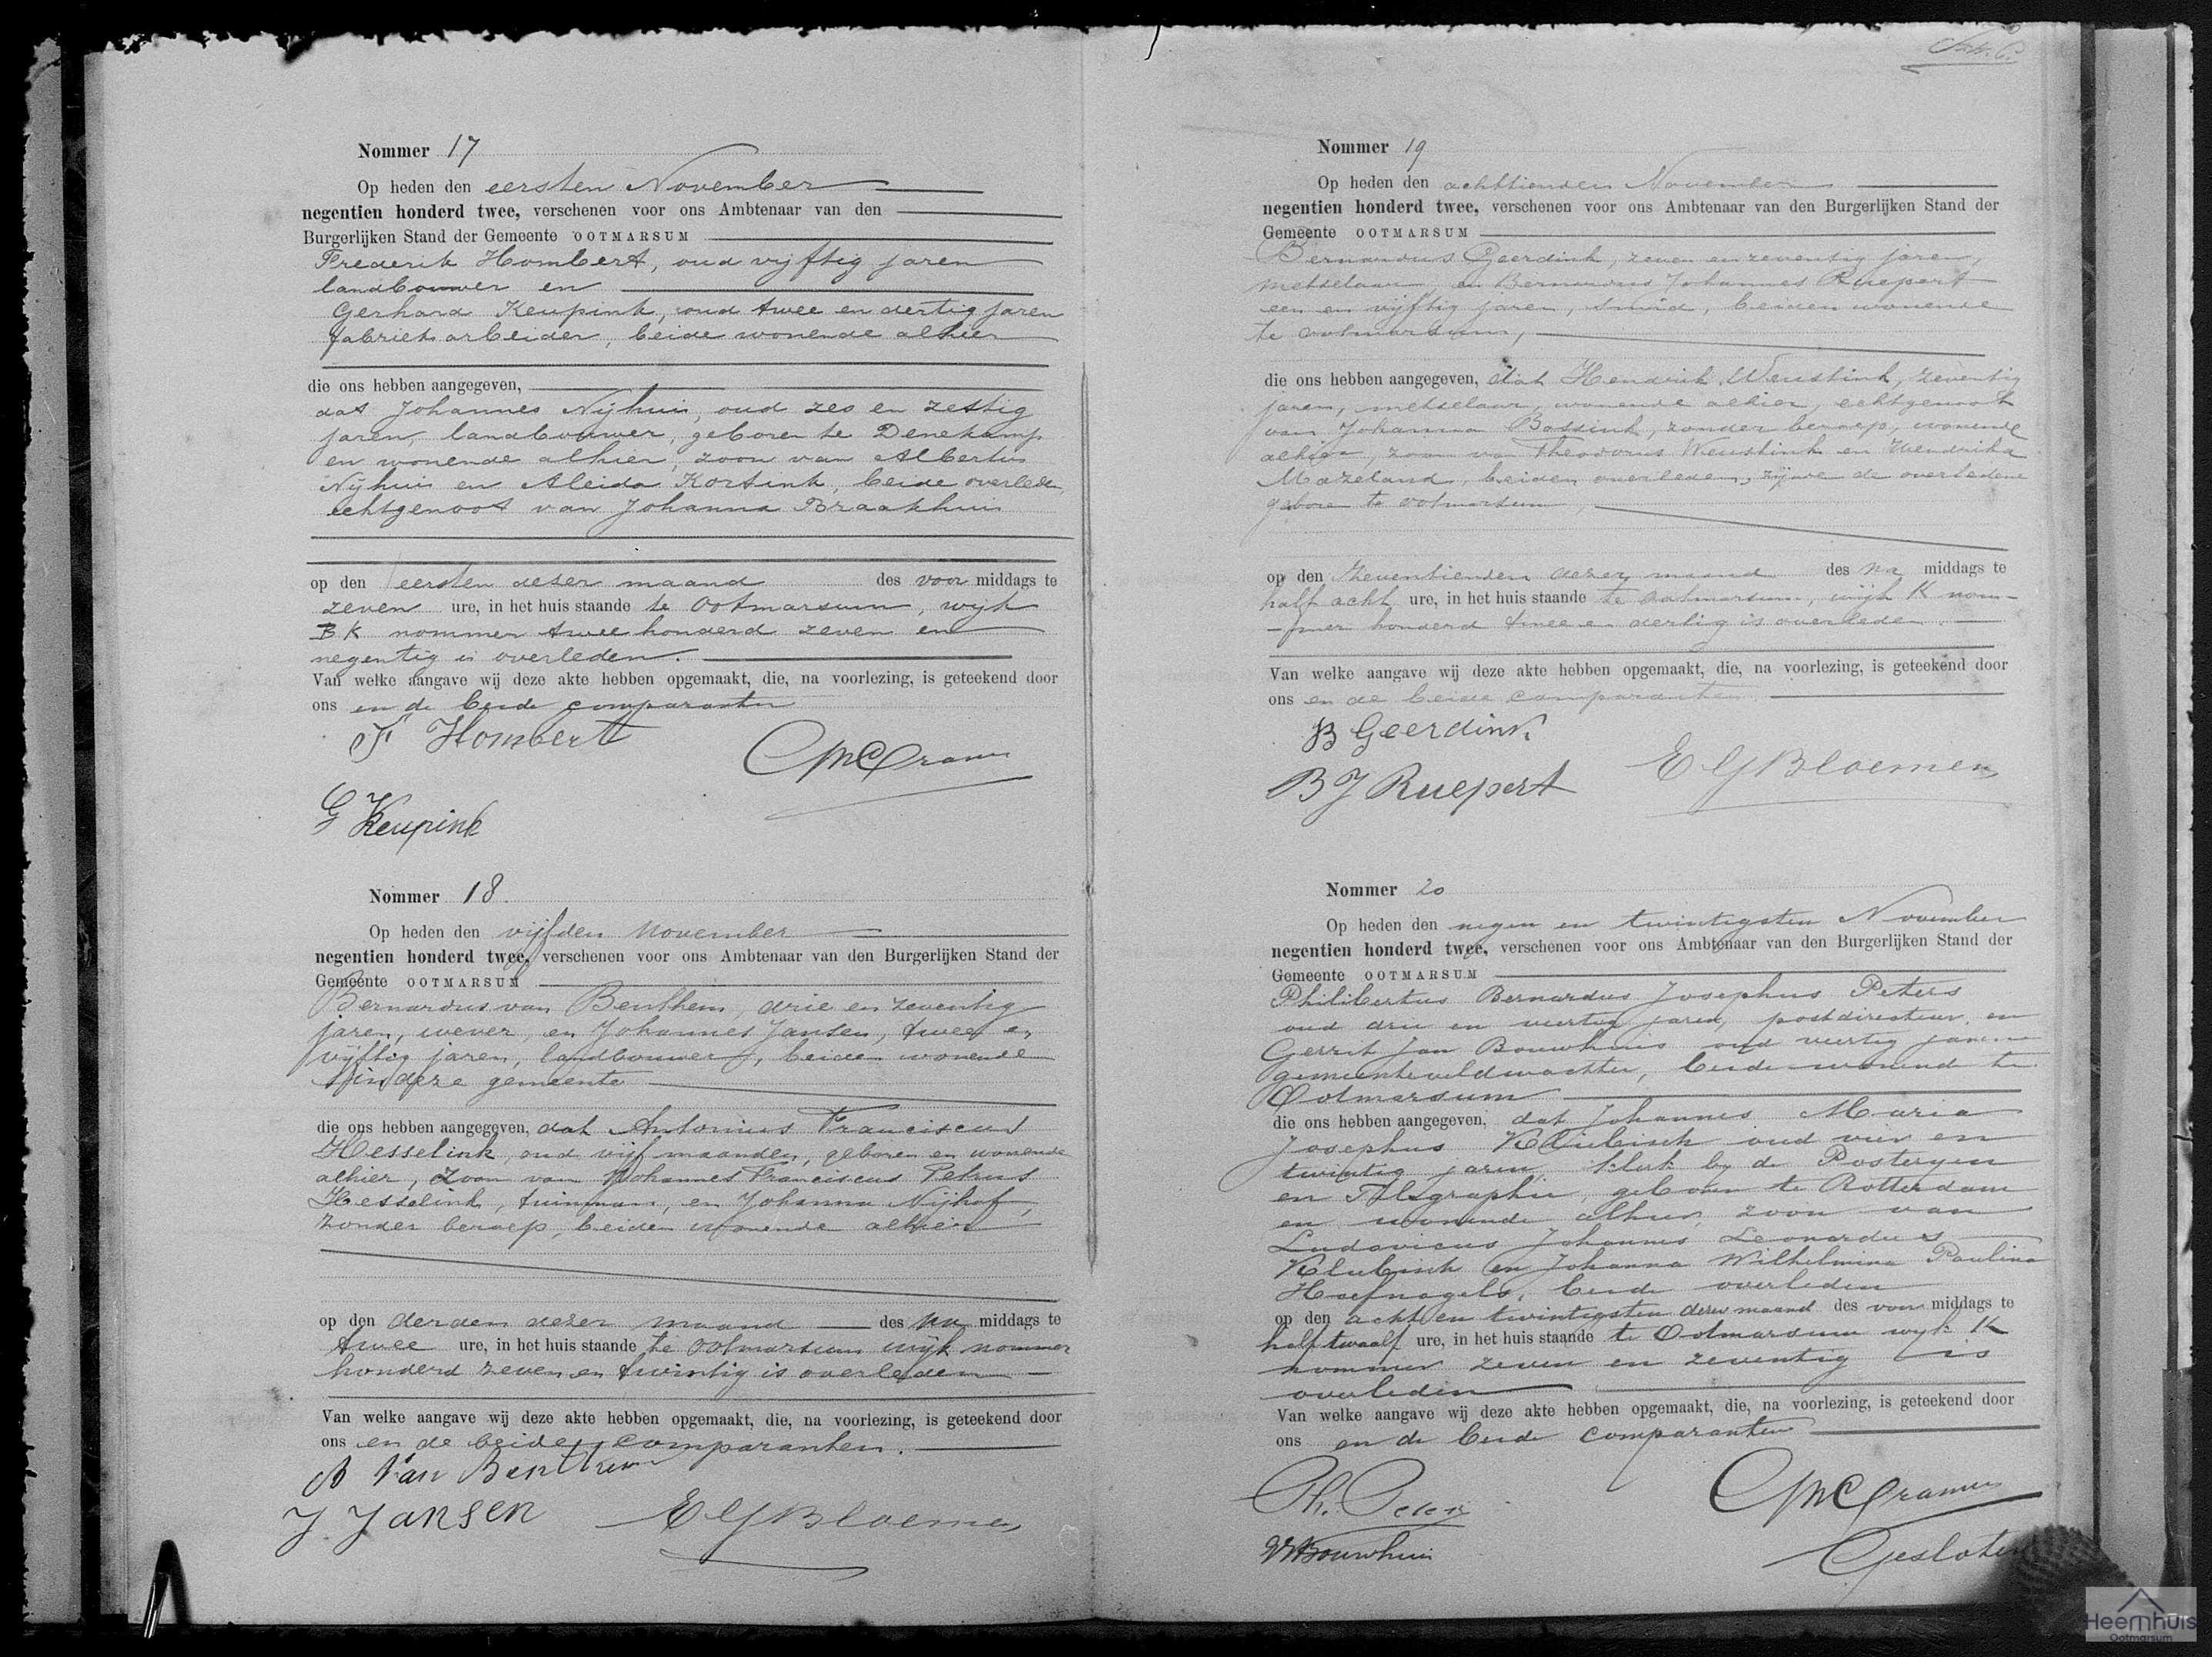 Nommer 17
Op heden den eersten November
negentien honderd twee, verschenen voor ons Ambtenaar van den
Burgerlijken Stand der Gemeente OOTMARSUM
Frederik Hombert, oud vijftig jaren
landbouwer en
Gerhard Keupink, oud twee en dertig jaren
fabrieksarbeider, beide wonende alhier
die ons hebben aangegeven,
dat Johannes Nijhuis, oud zes en zestig
jaren, landbouwer, geboren te Denekamp
en wonende alhier, zoon van Albertus
Nijhuis en Aleida Kortink, beide overleden
echtgenoot van Johanna Braakhuis
op den eersten dezer maand des voor middags te
zeven ure, in het huis staande te Ootmarsum, wijk
B K nommer twee honderd zeven en
negentig is overleden.
Van welke aangave wij deze akte hebben opgemaakt, die, na voorlezing, is geteekend door
ons en de beide comparanten
F Hombert
G Keupink
Nommer 18.
Op heden den vijfden November
negentien honderd twee, verschenen voor ons Ambtenaar van den Burgerlijken Stand der
Gemeente OOTMARSUM
Bernardus van Benthem, drie en zeventig
jaren, wever, en Johannes Jansen, twee en
vijftig jaren, landbouwer, beiden wonende
in deze gemeente
die ons hebben aangegeven, dat Antonius Franciscus
Hesselink, oud vijf maanden, geboren en wonende
alhier, zoon van Johannes Franciscus Petrus
Hesselink, tuinman, en Johanna Nijhof,
zonder beroep, beiden wonende alhier
op den derden dezer maand des na middags te
twee ure, in het huis staande te Ootmarsum wijk nommer
honderd zeven en twintig is overleden
Van welke aangave wij deze akte hebben opgemaakt, die, na voorlezing, is geteekend door
ons en de beide comparanten.
B Van Benthem
J Jansen E G Bloemen
Nommer 19
Op heden den achttienden November
negentien honderd twee, verschenen voor ons Ambtenaar van den Burgerlijken Stand der
Gemeente OOTMARSUM
Bernardus Geerdink, zeven en zeventig jaren,
metselaar, en Bernardus Johannes Ruepert
een en vijftig jaren, smid, beiden wonende
te Ootmarsum,
die ons hebben aangegeven, dat Hendrik Weustink, zeventig
jaren, metselaar, wonende alhier, echtgenoot
van Johanna Bossink, zonder beroep, wonende
alhier, zoon van Theodorus Weustink en Hendrika
Mazeland, beiden overleden, zijnde de overledene
geboren te Ootmarsum,
op den zeventienden dezer maand des na middags te
half acht ure, in het huis staande te Ootmarsum, wijk K nom-
-mer honderd twee en dertig is overleden.
Van welke aangave wij deze akte hebben opgemaakt, die, na voorlezing, is geteekend door
ons en de beide comparanten
B Geerdink
B J Ruepert E G Bloemen
Nommer 20
Op heden den negen en twintigsten November
negentien honderd twee, verschenen voor ons Ambtenaar van den Burgerlijken Stand der
Gemeente OOTMARSUM
Philibertus Bernardus Josephus Peters
oud drie en veertig jaren, postdirecteur, en
Gerrit Jan Bouwhuis oud veertig jaren
gemeenteveldwachter, beide wonende te
Ootmarsum
die ons hebben aangegeven, dat Johannes Maria
Josephus Klubisch oud vier en
twintig jaren, klerk bij de Posterijen
en Telegraphie, geboren te Rotterdam
en wonende alhier, zoon van
Ludovicus Johannes Leonardus
Klubisch en Johanna Wilhelmina Paulina
Hoefnagels, beide overleden
op den acht en twintigsten dezer maand des voor middags te
half twaalf ure, in het huis staande te Ootmarsum wijk K
nommer zeven en zeventig is
overleden
Van welke aangave wij deze akte hebben opgemaakt, die, na voorlezing, is geteekend door
ons en de beide comparanten
Ph. Peters
Bouwhuis
Gesloten
Heemhuis
Ootmarsum